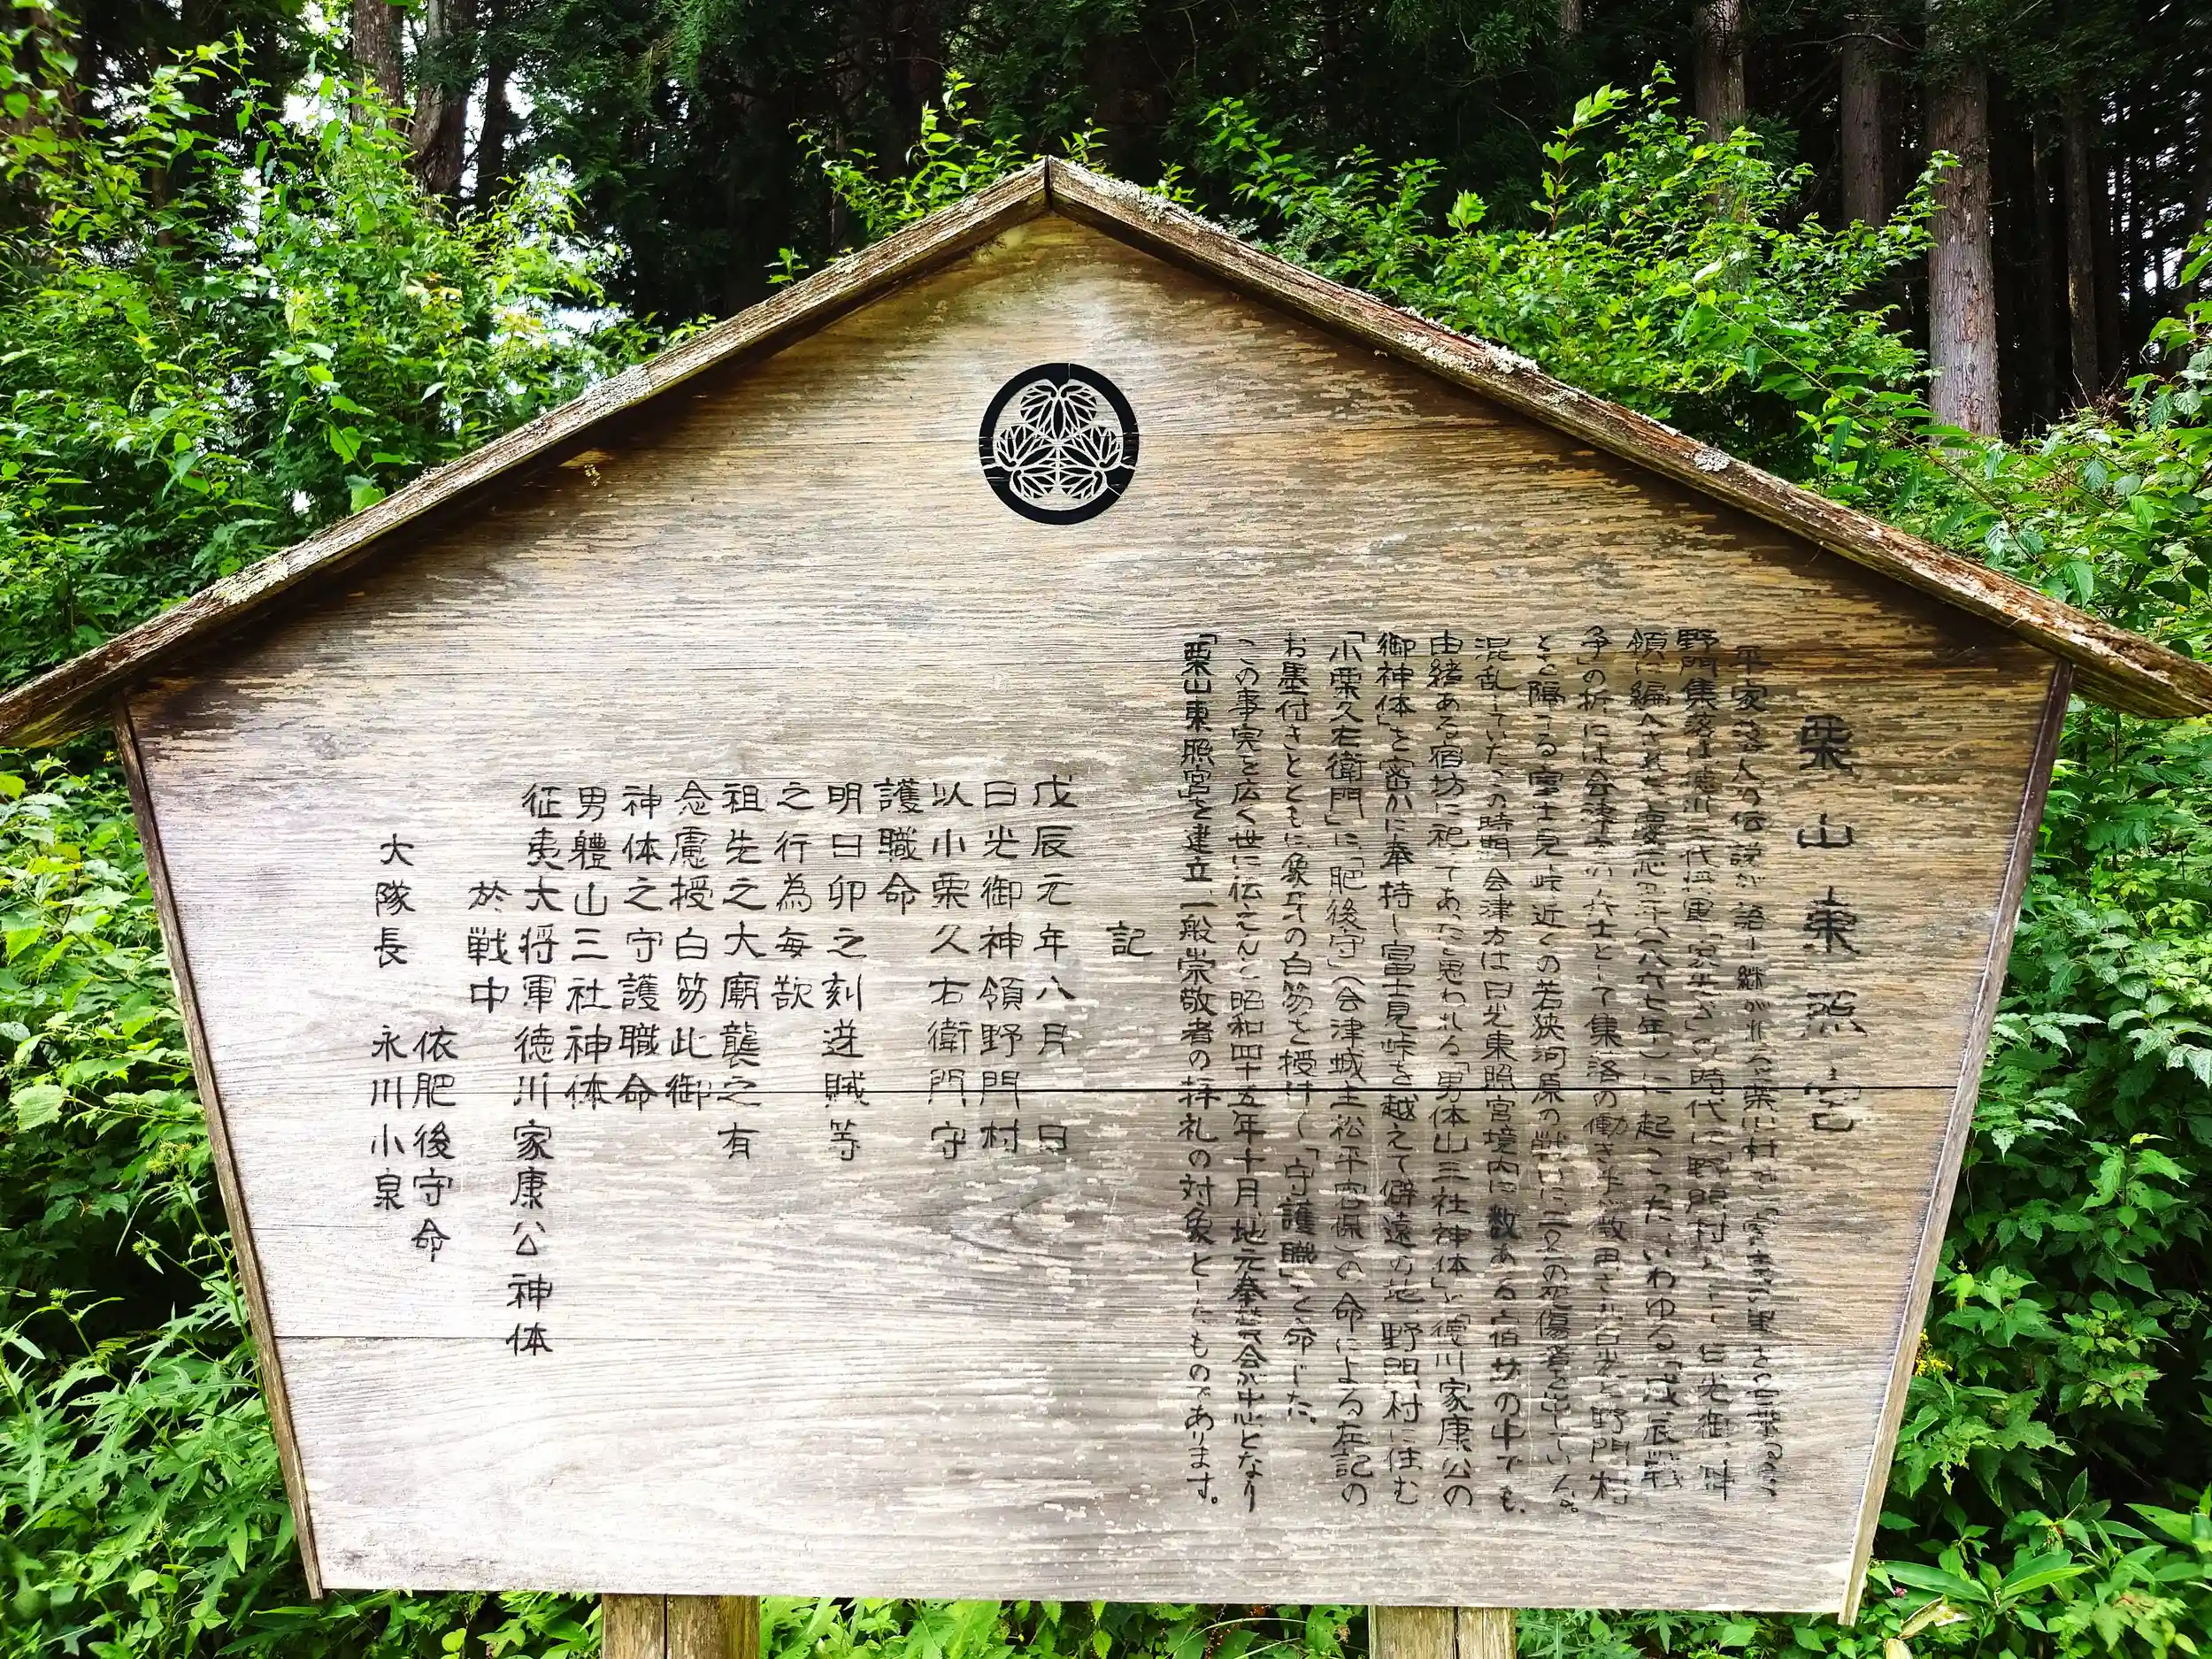 栗山東照宮
平家落人の伝説が語り継がれる栗山村で
野門集落は徳川三代将軍「家光公」の時代に「野門村」として日光御神
領に編入された慶応三年(一八六七年)に起こったいわゆる「戊辰戦
争」の折には会津方の兵士として集落の働き手が数田さ れ日光と野門村
とを隔てる富士見峠近くの若狭河原の戦いに二又の死傷者を出している。
混乱していたこの時期会津方は日光東照宮境内に数ある宿坊の中でも、
由緒ある宿坊に祀ってあったと思われる「男体山三社神体」と「徳川家康公の
御神体」を密かに奉持し富士見峠を越えて僻遠の地野門村に住む
「小栗久右衛門」に「肥後守」(会津城主松平容保)の命による左記の
お墨付きとともに象牙の白笏を授け、「守護職」を命じた。
この事実を広く世に伝えんと昭和四十五年十月地元奉賛会が中心となり
「栗山東照宮」を建立一般崇敬者の拝礼の対象としたものであります。
記
戊辰元年八月 日
日光御神領野門村
以小栗久右衛門守
護職命
明日卯之刻逆賊等
之行為毎歎
祖先之大廟襲之有
念慮授白笏此御
神体之守護職命
男體山三社神体
征夷大将軍徳川家康公神体
於戦中
依肥後守命
大隊長 永川小泉